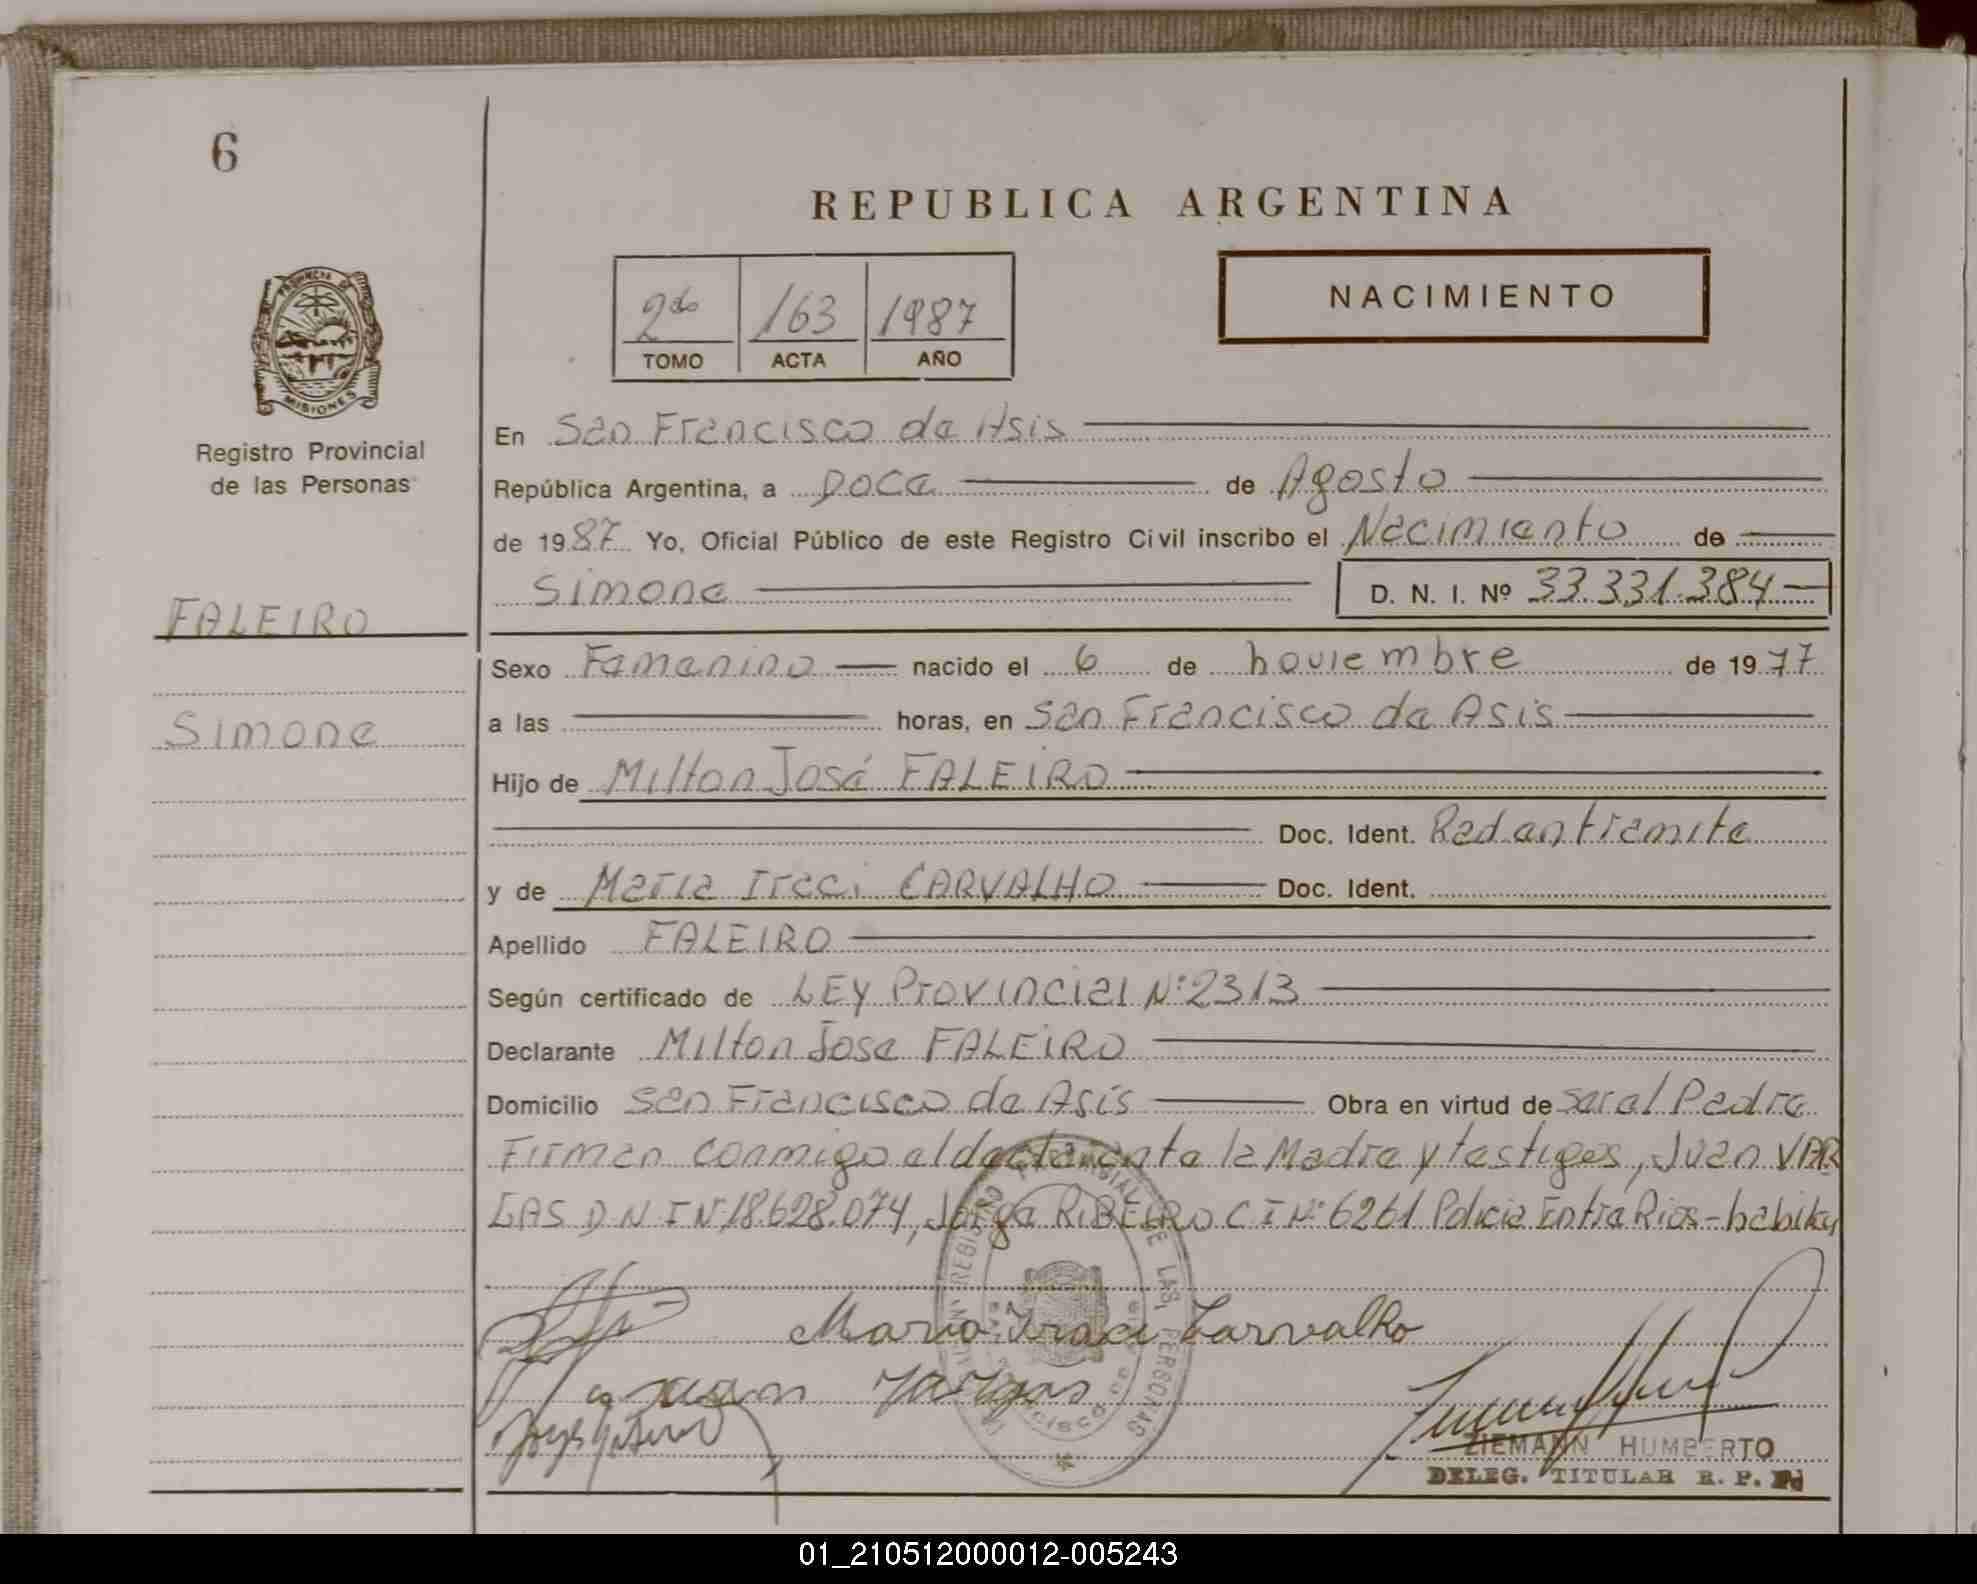 6
REPUBLICA ARGENTINA
NACIMIENTO
2do 163 1987
TOMO ACTA AÑO
PROVINCIA DE
MISIONES
Registro Provincial
de las Personas
En San Francisco de Asis
República Argentina, a Doce de Agosto
de 1987 Yo, Oficial Público de este Registro Civil inscribo el Nacimiento de
Simone D. N. I. Nº 33.331.384
FALEIRO
Simone
Sexo Femenino nacido el 6 de noviembre de 1977
a las horas, en San Francisco de Asis
Hijo de Milton José FALEIRO
Doc. Ident. Rad en tramite
y de Maria Iraci CARVALHO Doc. Ident.
Apellido FALEIRO
Según certificado de LEY Provincial Nº 2313
Declarante Milton Jose FALEIRO
Domicilio San Francisco de Asís Obra en virtud de ser el Padre
Firman conmigo el declarante la Madre y testigos, Juan VAR
GAS D N I Nº 18.628.074, Jorge RIBEIRO C I Nº 6261 Policia Entre Rios -
Maria Iraci Carvalho
Juan Vargas
ZIEMANN HUMBERTO
DELEG. TITULAR R. P.
01_210512000012-005243